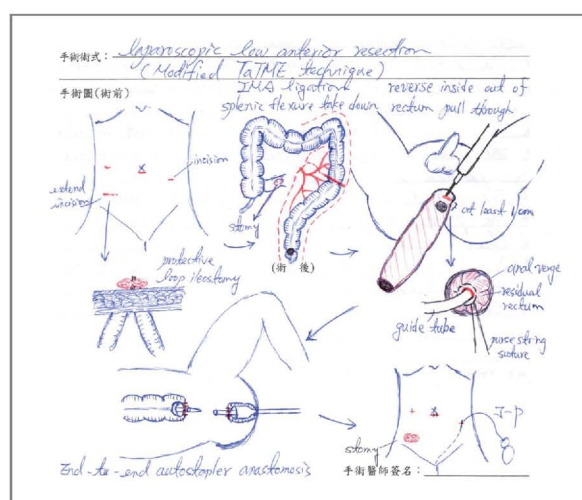 手術術式：laparoscopic low anterior resection
(Modified TaTME technique)
手術圖(術前)
IMA ligation
splenic flexure take down
reverse inside out of
rectum pull through
incision
extend
incision
stomy
at least 1 cm
(術 後)
protective
loop ileostomy
anal verge
residual
rectum
guide tube
purse string
suture
J-P
stomy
End-to-end autostapler anastomosis
手術醫師簽名：